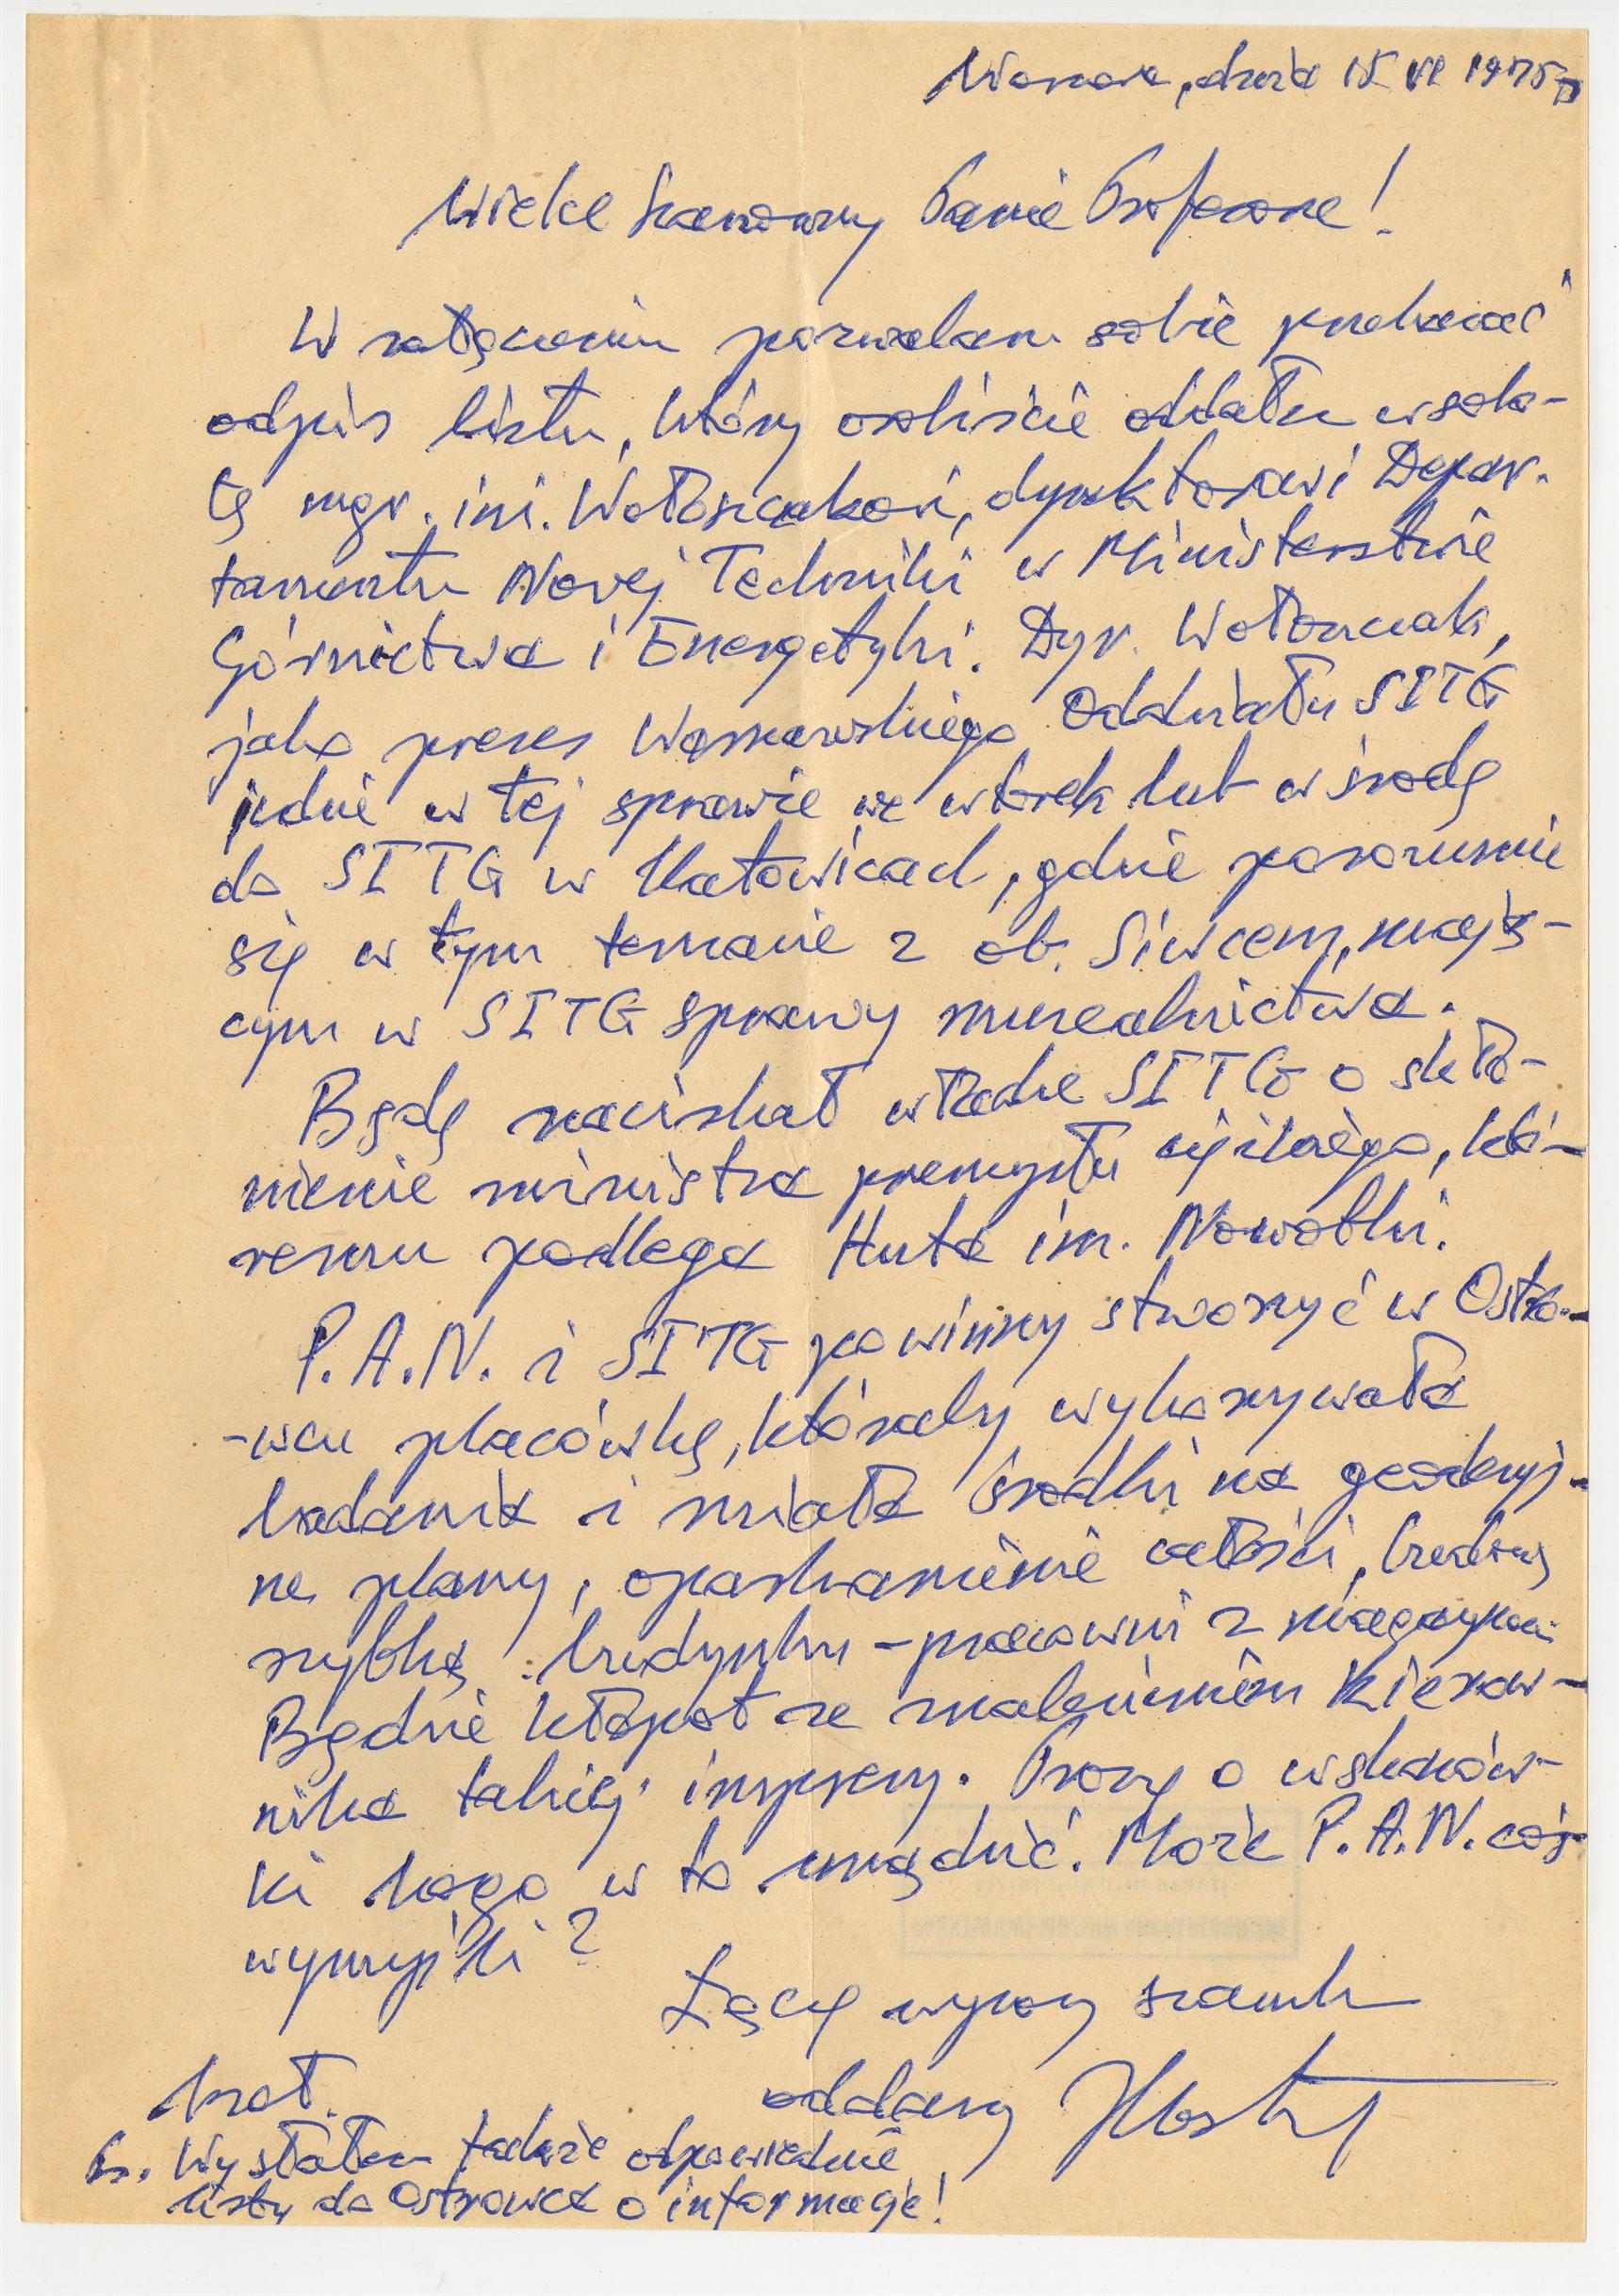 Warszawa, dnia 15 VI 1975 r
Wielce Szanowny Panie Profesorze!
W załączeniu pozwalam sobie przekazać
odpis listu, który osobiście oddałem w sobo-
tę mgr. inż. Wołoszczakowi, dyrektorowi Depar-
tamentu Nowej Techniki w Ministerstwie
Górnictwa i Energetyki. Dyr. Wołoszczak,
jako prezes Warszawskiego Oddziału SITG
jedzie w tej sprawie we wtorek lub w środę
do SITG w Katowicach, gdzie porozumie
się w tym temacie z ob. Siwcem, mają-
cym w SITG sprawy muzealnictwa.
Będę naciskał władze SITG o skło-
nienie ministra przemysłu ciężkiego, któ-
remu podlega Huta im. Nowotki.
P.A.N. i SITG powinny stworzyć w Ostro-
-wcu placówkę, któraby wykonywała
badania i miała środki na geodezyj-
ne plany, oparkanienie całości, budowę
szybką budynku - pracowni z magazynem
Będzie kłopot ze znalezieniem kierow-
nika takiej imprezy. Proszę o wskazów-
ki kogo w to wrządzić. Może P.A.N. coś
wymyśli?
Łączę wyrazy szacunku
oddany
zał.
Ps. Wysłałem także odpowiednie
listy do Ostrowca o informacje!